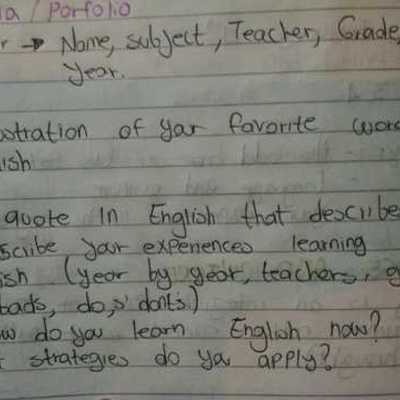 ia / Porfolio
r → Name, subject, Teacher, Grade,
Year.
ustration of your favorite word
lish
quote In English that describe
scribe your experiences learning
ish (year by year, teachers, g
bads, do,s' dont's)
ow do you learn English now?
t strategies do you apply?